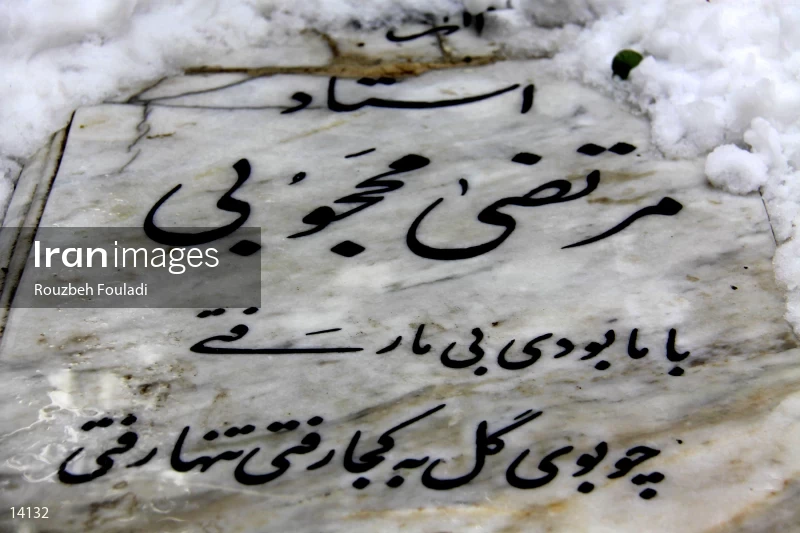 استاد
مرتضیٰ محجوبی
Iran images
Rouzbeh Fouladi
با ما بودی بی ما رفتی
چو بوی گل به کجا رفتی تنها رفتی
14132